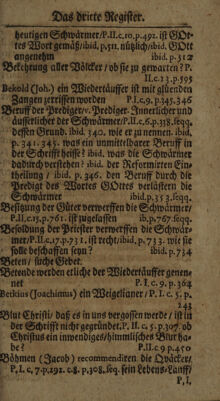 Das dritte Register.
heutigen Schwärmer/P.II.c.10.p.492. ist GOt-
tes Wort gemäß/ibid, p.511. nützlich/ibid. GOtt
angenehm ibid. p.512
Bekehrung aller Völcker / ob sie zu gewarten? P.
II.c.13.p.595
Bekold (Joh.) ein Wiedertäuffer ist mit glüenden
Zangen zerrissen worden P.I.c.9. p.345.346
Beruf der Prediger/v. Prediger. Innerlicher und
äusserlicher der Schwärmer/P.II.c.6.p.318.seqq.
dessen Grund. ibid. 340. wie er zu nennen. ibid.
p. 341. 345. was ein unmittelbarer Beruff in
der Schrifft heisse? ibid. was die Schwärmer
dadurch verstehen? ibid. der Reformirten Ein-
theilung / ibid. p. 346. den Beruff durch die
Predigt des Wortes GOttes verlästern die
Schwärmer ibid.p.353.seqq.
Besitzung der Güter verwerffen die Schwärmer/
P.II.c.15.p.761. ist zugelassen ib.p.767.seqq.
Besoldung der Priester verwerffen die Schwär-
mer/P.II.c.17.p.731. ist recht/ibid. p.733. wie sie
solle beschaffen seyn? ibid. p.734
Beten/ siehe Gebet.
Betende werden etliche der Wiedertäuffer genen-
net P. I. c. 9. p. 364
Betkius (Joachimus) ein Weigelianer / P. I. c. 5. p.
243
Blut Christi/ daß es in uns vergossen werde / ist in
der Schrifft nicht gegründet. P. II. c. 5. p.307. ob
Christus ein inwendiges/himmlisches Blut ha-
be? P.II.c.9 p.450
Böhmen (Jacob) recommendiren die Qväcker/
P.I,c,7.p.192.c.8. p.308.seq. sein Lebens-Lauff/
P.I,